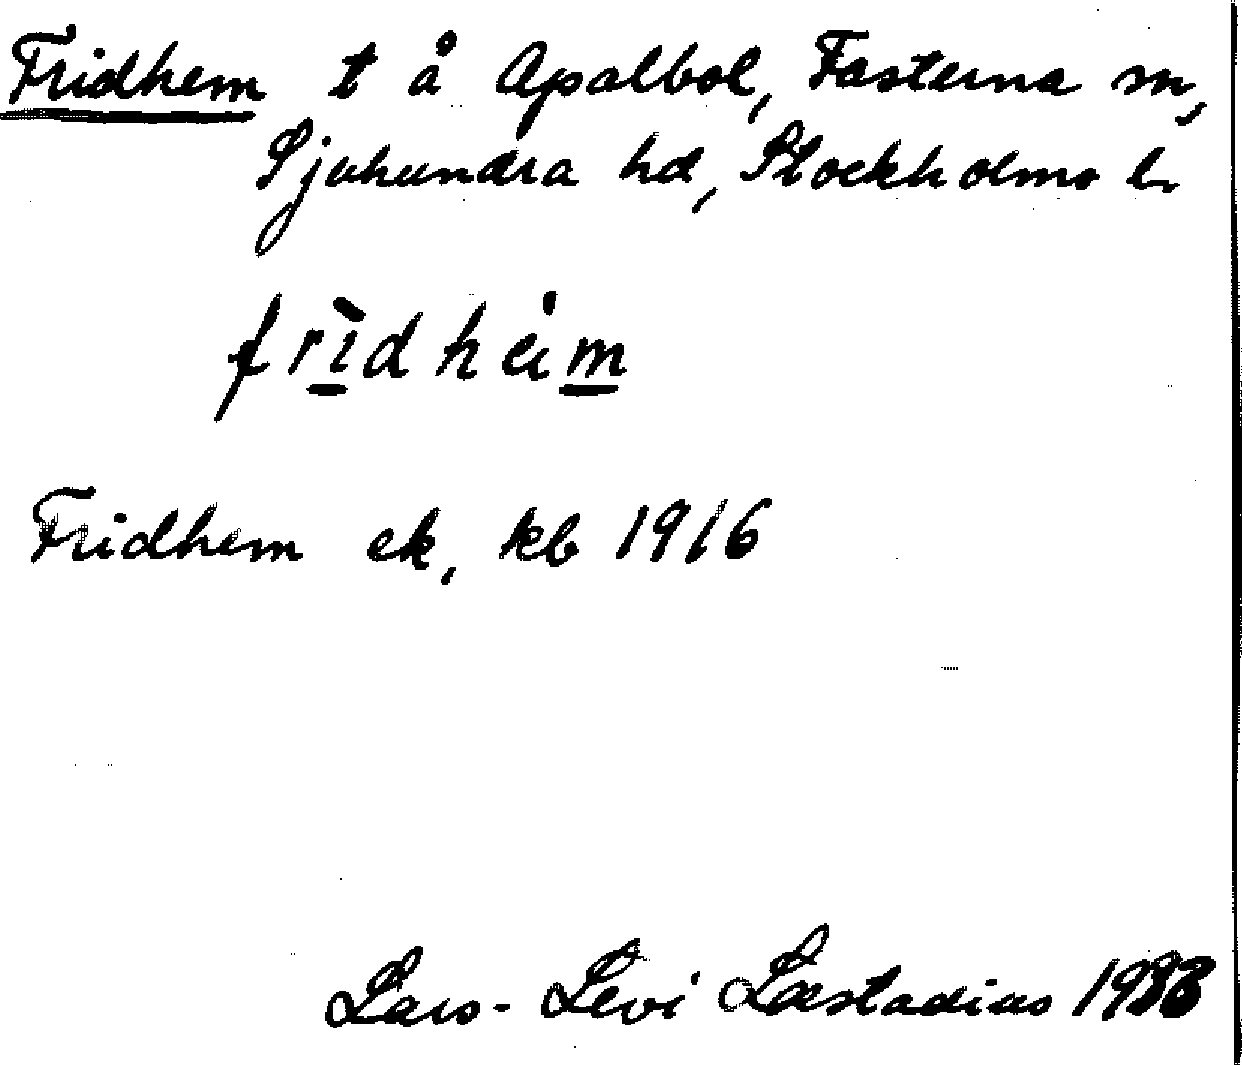 Fridhem t å Apalbol, Fasterna sn,
Sjuhundra hd, Stockholms l.
frìdhèm
Fridhem ek, kb 1916
Lars-Levi Læstadius 1983